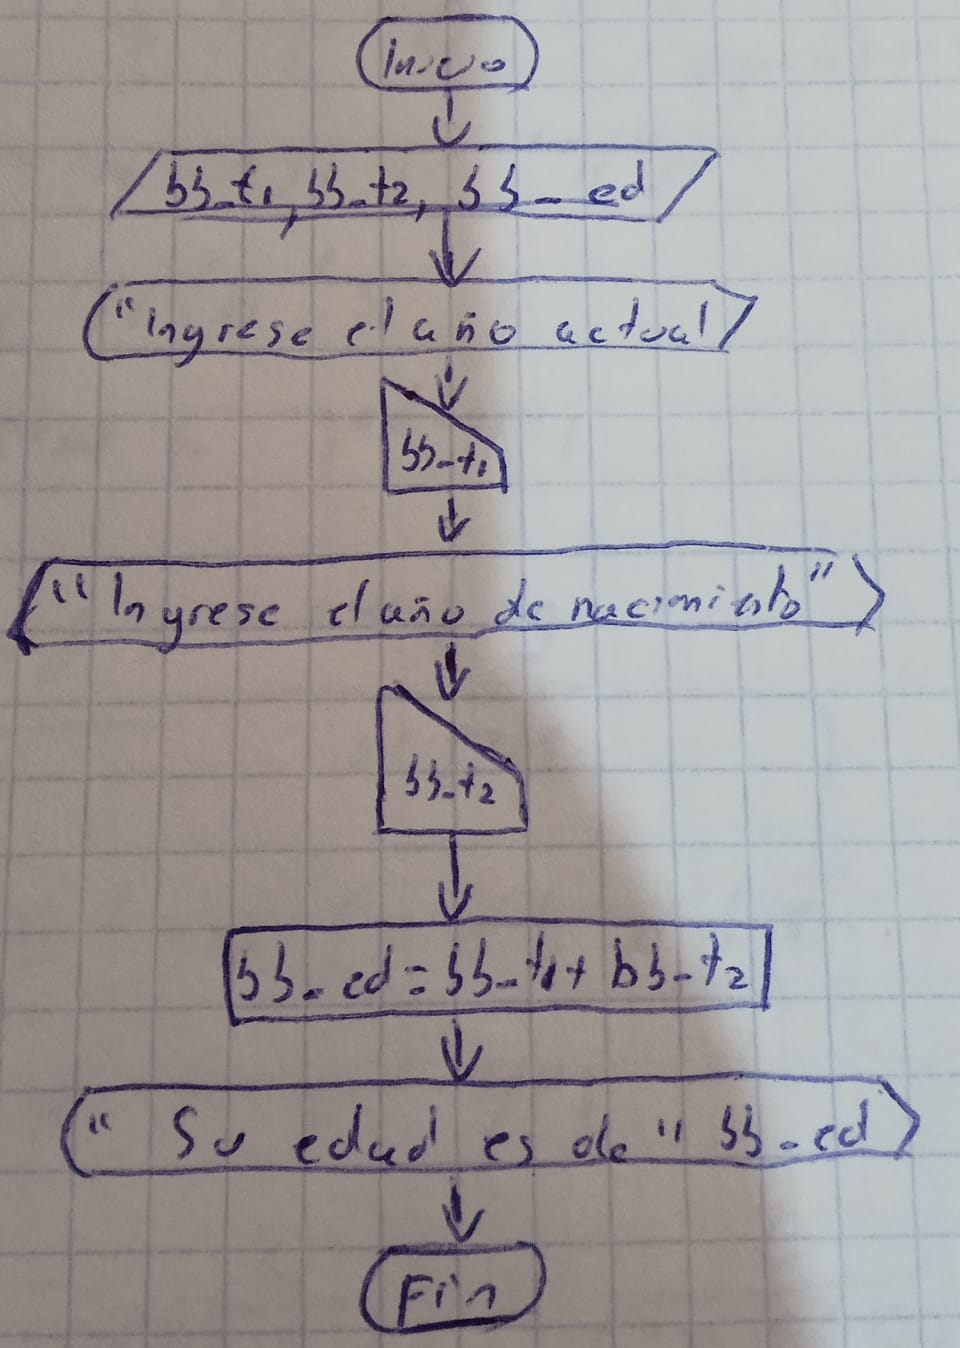 Inicio
bb_t1, bb_t2, bb_ed
"Ingrese el año actual
bb_t1
"Ingrese el año de nacimiento"
bb_t2
bb_ed = bb_t1 + bb_t2
"Su edad es de" bb_ed
Fin